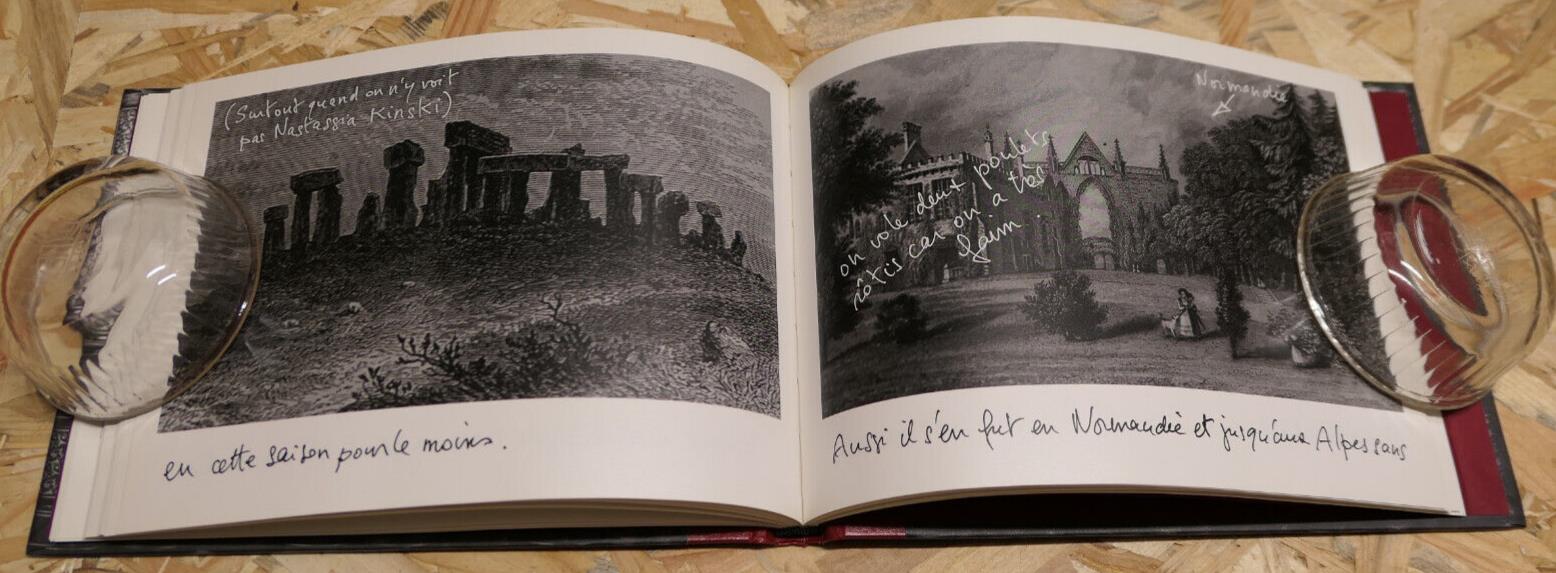 (Surtout quand on n'y voit
pas Nastassia Kinski)
en cette saison pour le moins.
Normandie
on vole deux poulets
rôtis car on a très
faim.
Aussi il s'en fut en Normandie et jusqu'aux Alpes sans